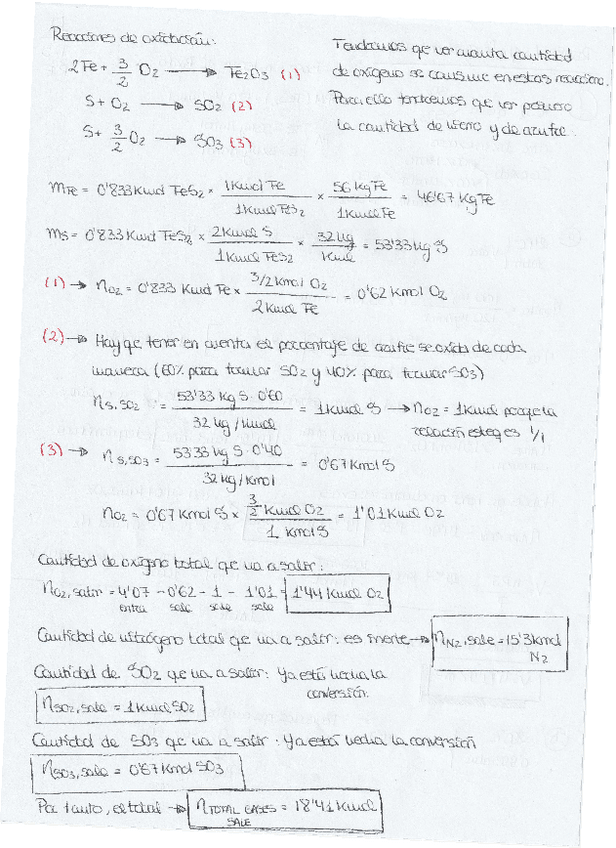 Reacciones de oxidación:
2Fe + 3/2 O₂ ⟶ Fe₂O₃ (1)
S + O₂ ⟶ SO₂ (2)
S + 3/2 O₂ ⟶ SO₃ (3)
Tendamos que ver cuanta cantidad
de oxígeno se consume en estas reacciones.
Para ello tendremos que ver primero
la cantidad de hierro y de azufre.
m_Fe = 0'833 Kmol FeS₂ × 1Kmol Fe / 1Kmol FeS₂ × 56 Kg Fe / 1Kmol Fe = 46'67 Kg Fe
m_S = 0'833 Kmol FeS₂ × 2Kmol S / 1Kmol FeS₂ × 32 Kg / Kmol = 53'33 Kg S
(1) → n_O₂ = 0'833 Kmol Fe × 3/2 Kmol O₂ / 2Kmol Fe = 0'62 Kmol O₂
(2) → Hay que tener en cuenta el porcentaje de azufre se oxida de cada
manera (60% para formar SO₂ y 40% para formar SO₃)
n_S,SO₂ = 53'33 Kg S · 0'60 / 32 Kg/Kmol = 1Kmol S → n_O₂ = 1Kmol porque la
relación esteq es 1/1
(3) → n_S,SO₃ = 53'33 Kg S · 0'40 / 32 Kg/Kmol = 0'67 Kmol S
n_O₂ = 0'67 Kmol S × 3/2 Kmol O₂ / 1 Kmol S = 1'01 Kmol O₂
Cantidad de oxígeno total que va a salir:
n_O₂,salir = 4'07 − 0'62 − 1 − 1'01 = 1'44 Kmol O₂
entra sale sale sale
Cantidad de nitrógeno total que va a salir: es inerte → n_N₂,sale = 15'3 Kmol
N₂
Cantidad de SO₂ que va a salir: Ya está hecha la
conversión.
n_SO₂,sale = 1 Kmol SO₂
Cantidad de SO₃ que va a salir: Ya está hecha la conversión
n_SO₃,sale = 0'67 Kmol SO₃
Por tanto, el total → n_TOTAL GASES = 18'41 Kmol
SALE